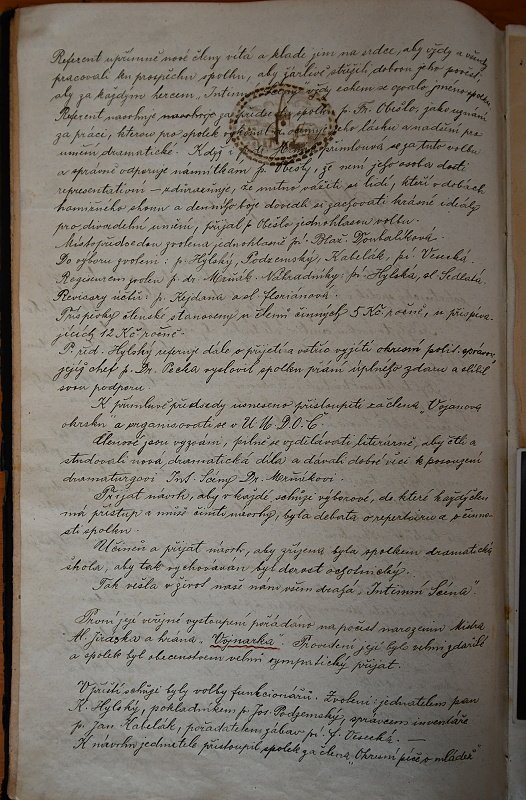 Referent upřímně nové členy vítá a klade jim na srdce, aby vždy a všude
pracovali ku prospěchu spolku, aby žárlivě střežili dobrou jeho pověst,
aby za každým hercem „Intimní scény" vždy
Referent navrhuje za předsedu spolku p. Fr. Obešlo, jako uznání
za práci, kterou pro spolek lásku a nadšení pro
umění dramatické. Když i p. přimlouvá se za tuto volbu
a správně odporuje námitkám p. Obešly, že není jeho osoba dosti
representativní – zdůrazňuje, že nutno vážiti si lidí, kteří v dobách
denního boje dovedli si zachovati krásné ideály
pro divadelní umění, přijal p. Obešlo jednohlasnou volbu.
Místopředsedou zvolena jednohlasně pí. Blaž. Doubalíková.
Do výboru zvoleni: p. Hylský, Podzemský, Kabelák, pí. Vesecká.
Regisseurem zvolen p. dr. Mrňák. Náhradníky: pí. Hylská, sl. Sedlatá.
Revisory účtů: p. Kejdana a sl. Florianová.
Příspěvky členské stanoveny u členů činných 5 Kč ročně, u přispíva-
jících 12 Kč ročně.
P. řed. Hylský referuje dále o přijetí a vstříc vyjití okresní polit. správy,
jejíž chef p. Dr. Pecka vyslovil spolku přání úplného zdaru a slíbil
svou podporu.
K přímluvě předsedy usneseno přistoupiti za člena „Vojanova
okrsku" a organisovati se v Ú. M. D. O. Č.
Členové jsou vyzváni, pilně se vzdělávati literárně, aby četli a
studovali nová dramatická díla a dávali dobré věci k posouzení
dramaturgovi Int. Scény Dr. Mrňákovi.
Přijat návrh, aby v každé schůzi výborové, do které každý člen
má přístup a může činiti návrhy, byla debata o repertoiru a o činno-
sti spolku.
Učiněn a přijat návrh, aby zřízena byla spolkem dramatická
škola, aby tak vychováván byl dorost ochotnický.
Tak vešla v život naše nám všem drahá „Intimní Scéna".
První její veřejné vystoupení pořádáno na počest narozenin Mistra
Al. Jiráska a hrána „Vojnarka". Provedení její bylo velmi zdařilé
a spolek byl obecenstvem velmi sympaticky přijat.
V příští schůzi byly volby funkcionářů. Zvoleni: jednatelem pan
K. Hylský, pokladníkem p. Jos. Podzemský, správcem inventáře
p. Jan Kabelák, pořadatelem zábav pí. F. Vesecká. —
K návrhu jednatele přistoupil spolek za člena „Okresní péče o mládež"